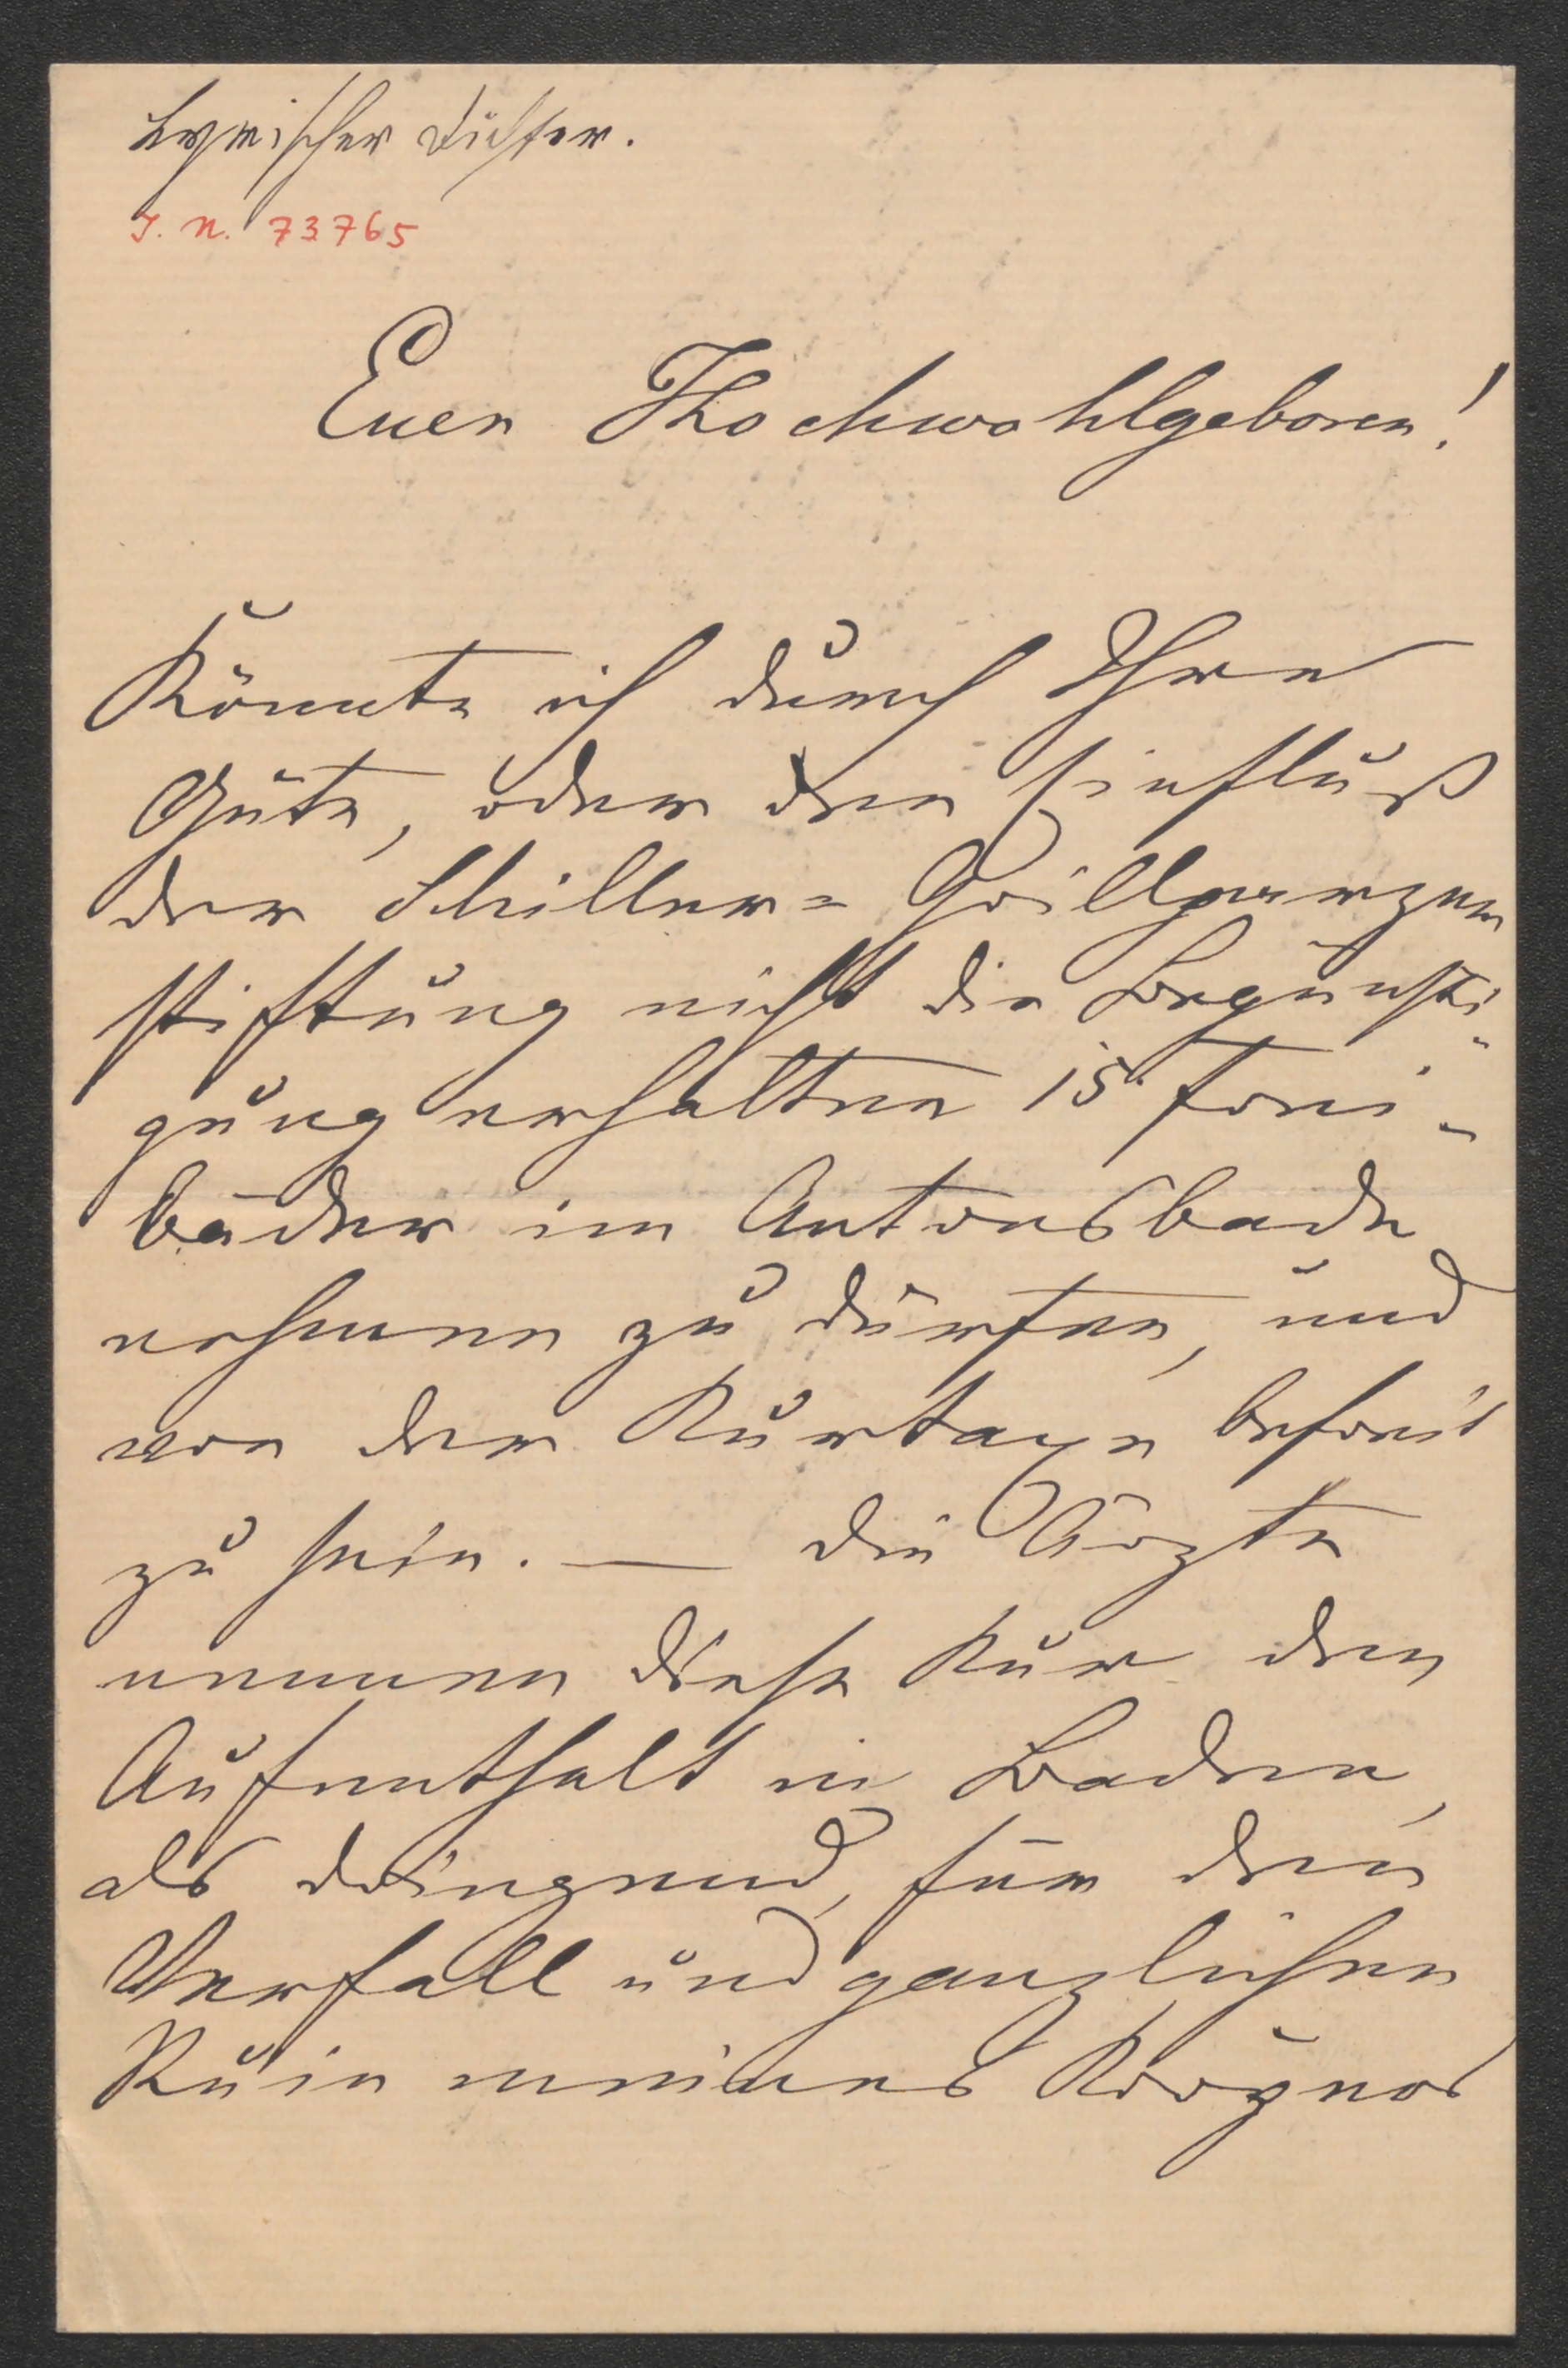 Lyrischer Dichter.
I. N. 73765
Euer Hochwohlgeboren!
Könnte ich durch Ihre
Güte, oder den Einfluß
der Schiller= Grillparzer
stiftung nicht die Begünsti-
gung erhalten 15 Frei-
bäder im Antonsbade
nehmen zu dürfen, und
von der Kurtaxe befreit
zu sein. — Die Ärzte
nennen diese Kur den
Aufenthalt in Baden,
als dringend, für den
Verfall und gänzlichen
Ruin meines Körpers